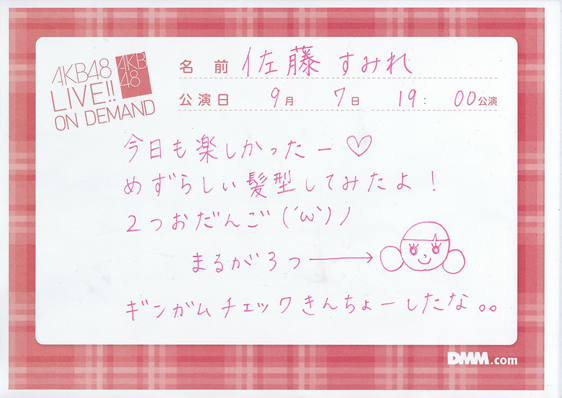 AKB48
LIVE!!
ON DEMAND
AKB
48
名前 佐藤すみれ
公演日 9月 7日 19: 00公演
今日も楽しかったー♡
めずらしい髪型してみたよ!
2つおだんご(´ω`)ノ
まるが3つ→
ギンガムチェックきんちょーしたな。。
DMM.com